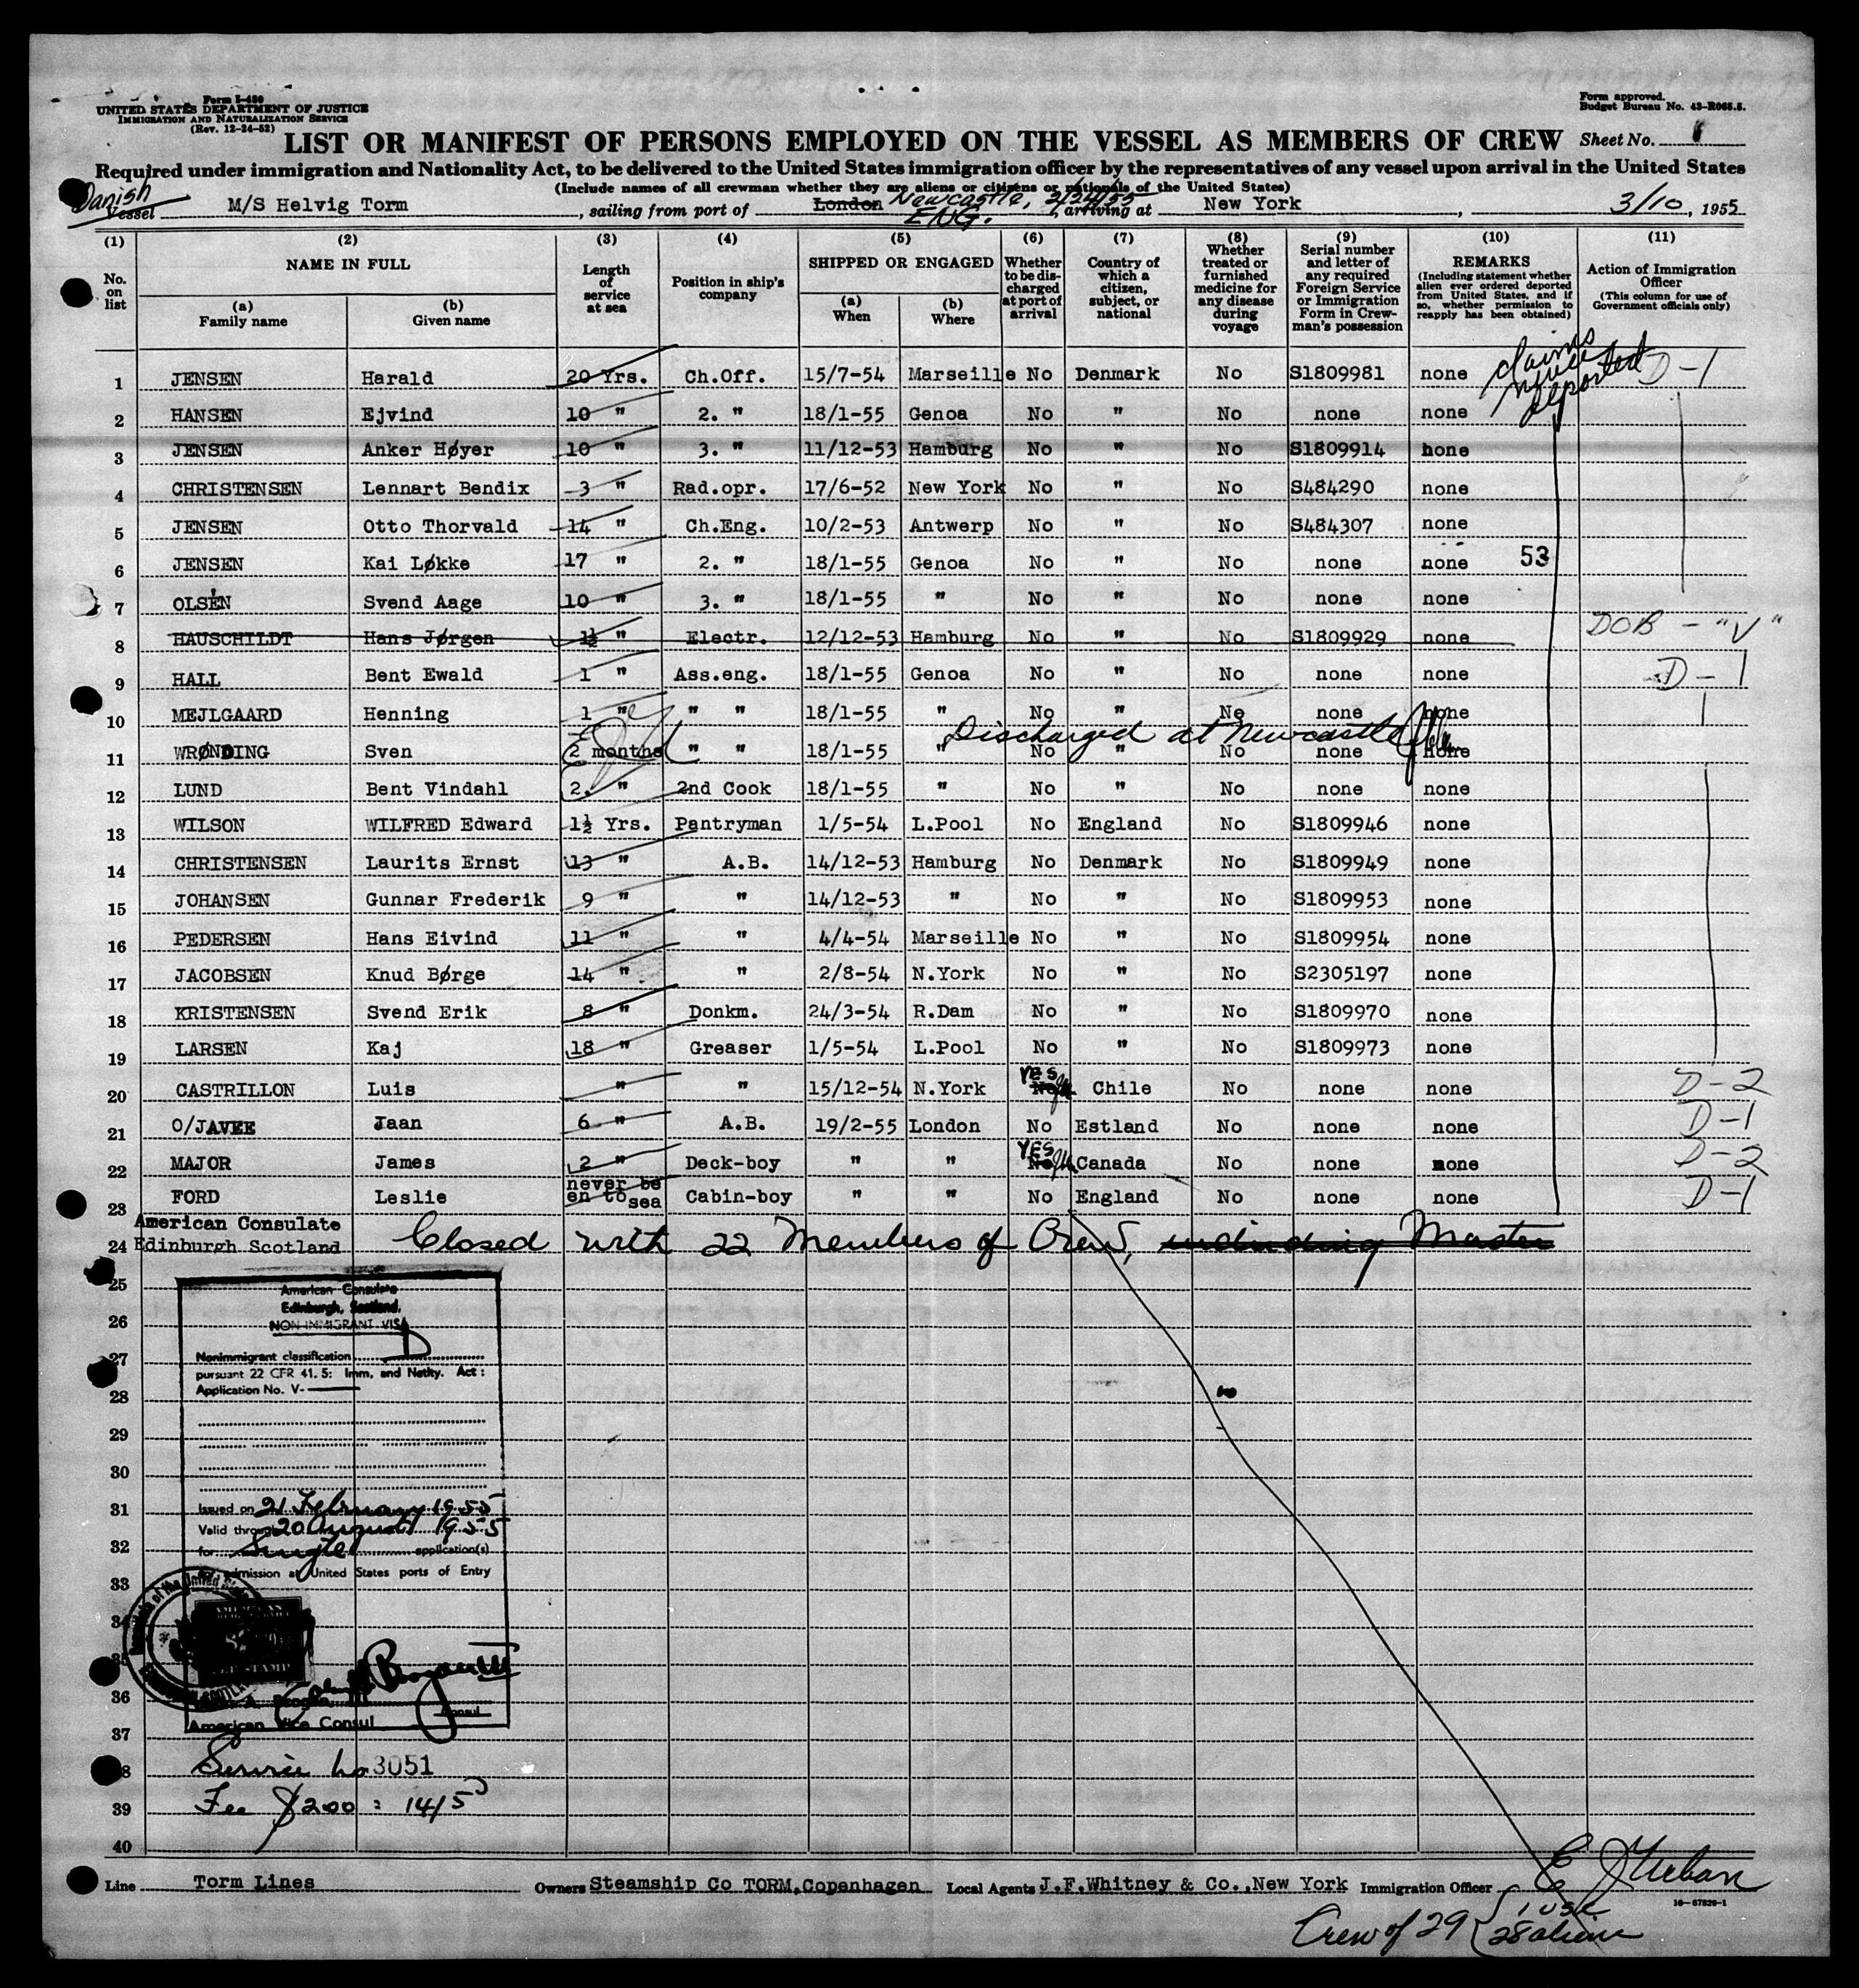 Form I-480
UNITED STATES DEPARTMENT OF JUSTICE
IMMIGRATION AND NATURALIZATION SERVICE
(Rev. 12-24-52)
Form approved.
Budget Bureau No. 43-R065.5.
LIST OR MANIFEST OF PERSONS EMPLOYED ON THE VESSEL AS MEMBERS OF CREW Sheet No.
Required under immigration and Nationality Act, to be delivered to the United States immigration officer by the representatives of any vessel upon arrival in the United States
(Include names of all crewman whether they are aliens or citizens or nationals of the United States)
Danish
Vessel M/S Helvig Torm, sailing from port of London Newcastle, ENG. 2/24/55, arriving at New York, 3/10, 1955
(1) (2) (3) (4) (5) (6) (7) (8) (9) (10) (11)
No. on list
NAME IN FULL
(a) Family name
(b) Given name
Length of service at sea
Position in ship's company
SHIPPED OR ENGAGED
(a) When
(b) Where
Whether to be discharged at port of arrival
Country of which a citizen, subject, or national
Whether treated or furnished medicine for any disease during voyage
Serial number and letter of any required Foreign Service or Immigration Form in Crewman's possession
REMARKS
(Including statement whether alien ever ordered deported from United States, and if so, whether permission to reapply has been obtained)
Action of Immigration Officer
(This column for use of Government officials only)
claims never deported
1 JENSEN Harald 20 Yrs. Ch.Off. 15/7-54 Marseille No Denmark No S1809981 none D-1
2 HANSEN Ejvind 10 " 2. " 18/1-55 Genoa No " No none none
3 JENSEN Anker Høyer 10 " 3. " 11/12-53 Hamburg No " No S1809914 none
4 CHRISTENSEN Lennart Bendix 3 " Rad.opr. 17/6-52 New York No " No S484290 none
5 JENSEN Otto Thorvald 14 " Ch.Eng. 10/2-53 Antwerp No " No S484307 none
6 JENSEN Kai Løkke 17 " 2. " 18/1-55 Genoa No " No none none 53
7 OLSEN Svend Aage 10 " 3. " 18/1-55 " No " No none none
8 HAUSCHILDT Hans Jørgen 1½ " Electr. 12/12-53 Hamburg No " No S1809929 none DOB - "V"
9 HALL Bent Ewald 1 " Ass.eng. 18/1-55 Genoa No " No none none D-1
10 MEJLGAARD Henning 1 " " " 18/1-55 " No " No none none
Discharged at Newcastle
11 WRØNDING Sven 2 months " " 18/1-55 " No " No none none
12 LUND Bent Vindahl 2. " 2nd Cook 18/1-55 " No " No none none
13 WILSON WILFRED Edward 1½ Yrs. Pantryman 1/5-54 L.Pool No England No S1809946 none
14 CHRISTENSEN Laurits Ernst 13 " A.B. 14/12-53 Hamburg No Denmark No S1809949 none
15 JOHANSEN Gunnar Frederik 9 " " 14/12-53 " No " No S1809953 none
16 PEDERSEN Hans Eivind 11 " " 4/4-54 Marseille No " No S1809954 none
17 JACOBSEN Knud Børge 14 " " 2/8-54 N.York No " No S2305197 none
18 KRISTENSEN Svend Erik 8 " Donkm. 24/3-54 R.Dam No " No S1809970 none
19 LARSEN Kaj 18 " Greaser 1/5-54 L.Pool No " No S1809973 none
20 CASTRILLON Luis " " 15/12-54 N.York YES No Chile No none none D-2
21 O/JAVEE Jaan 6 " A.B. 19/2-55 London No Estland No none none D-1
22 MAJOR James 2 " Deck-boy " " YES No Canada No none none D-2
23 FORD Leslie never been to sea Cabin-boy " " No England No none none D-1
24 American Consulate
Edinburgh Scotland
Closed with 22 Members of Crew, including Master
25
26
27
28
29
30
31
32
33
34
35
36
37
38
39
40
American Consulate
Edinburgh, Scotland.
NON-IMMIGRANT VISA
Nonimmigrant classification D
pursuant 22 CFR 41.5: Imm. and Natlty. Act:
Application No. V-
Issued on 21 February 1955
Valid through 20 August 1955
for Single application(s)
admission at United States ports of Entry
American Vice Consul
Consul
Service No 3051
Fee $2.00 = 14/5
Line Torm Lines Owners Steamship Co TORM, Copenhagen Local Agents J.F.Whitney & Co., New York Immigration Officer
16-67829-1
Crew of 29 { 1 USC
28 aliens